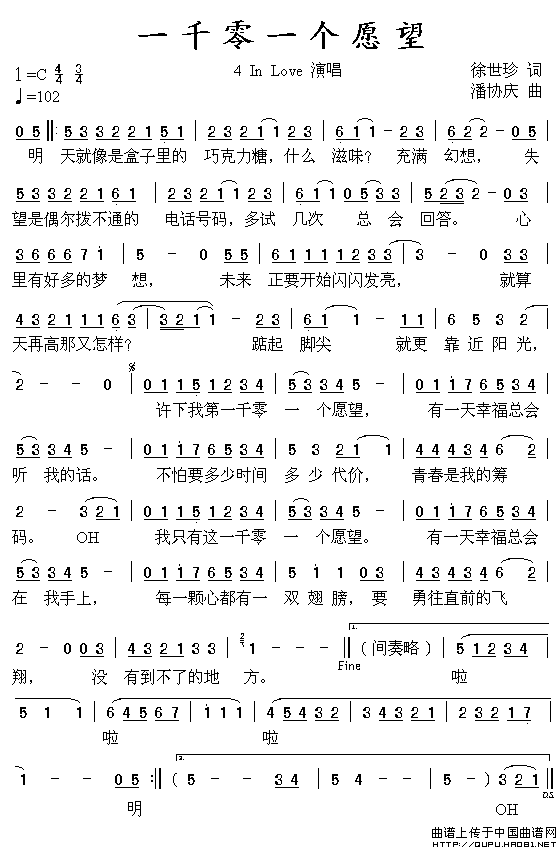 一千零一个愿望
1=C 4/4 3/4
4 In Love 演唱
徐世珍 词
♩=102
潘协庆 曲
05 ‖: 5 3 3 2 2 1 5 1 | 2 3 2 1 1 2 3 | 6 1 1 - 2 3 | 6 2 2 - 0 5 |
明 天就像是盒子里的 巧克力糖，什么 滋味？ 充满 幻想， 失
5 3 3 2 2 1 6 1 | 2 3 2 1 1 2 3 | 6 1 1 5 1 | 2 2 3 2 - 0 3 |
望是偶尔拨不通的 电话号码，多试 几次 总 会 回答。 心
3 6 6 6 7 1 | 5 - 0 5 5 | 6 1 1 1 1 2 3 3 | 3 - 0 3 3 |
里有好多的梦 想， 未来 正要开始闪闪发亮， 就算
4 3 2 1 1 1 6 3 | 3 2 1 1 - 2 3 | 2 1 1 - 1 1 | 6 5 3 2 |
天再高那又怎样？ 踮起 脚尖 就更 靠近阳光，
2 - - 0 | 0 1 1 5 1 2 3 4 | 5 3 3 4 5 - | 0 1 1 7 6 5 3 4 |
许下我第一千零 一 个愿望， 有一天幸福总会
5 3 3 4 5 - | 0 1 1 7 6 5 3 4 | 5 3 2 1 1 | 4 4 4 3 4 6 2 |
听 我的话。 不怕要多少时间 多少代价， 青春是我的筹
2 - 3 2 1 | 0 1 1 5 1 2 3 4 | 5 3 3 4 5 - | 0 1 1 7 6 5 3 4 |
码。 OH 我只有这一千零 一 个愿望。 有一天幸福总会
5 3 3 4 5 - | 0 1 1 7 6 5 3 4 | 5 1 1 0 3 | 4 3 4 3 4 6 2 |
在 我手上， 每一颗心都有一 双翅膀，要 勇往直前的飞
2 - 0 0 3 | 4 3 2 1 3 3 | 1 - - - ‖ (间奏略) | 5 1 2 3 4 |
Fine
翔， 没 有到不了的地 方。 啦
5 1 1 | 6 4 5 6 7 | 1 1 1 | 4 5 4 3 2 | 3 4 3 2 1 | 2 3 2 1 1 7 |
啦 啦
1 - - 0 5 :‖ (5 - - 3 4 | 5 - - 3 4 | 5 5 5 - ) 3 2 1 ‖
D.S.
明 OH
曲谱上传于中国曲谱网
HTTP://QUPU.HAO81.NET